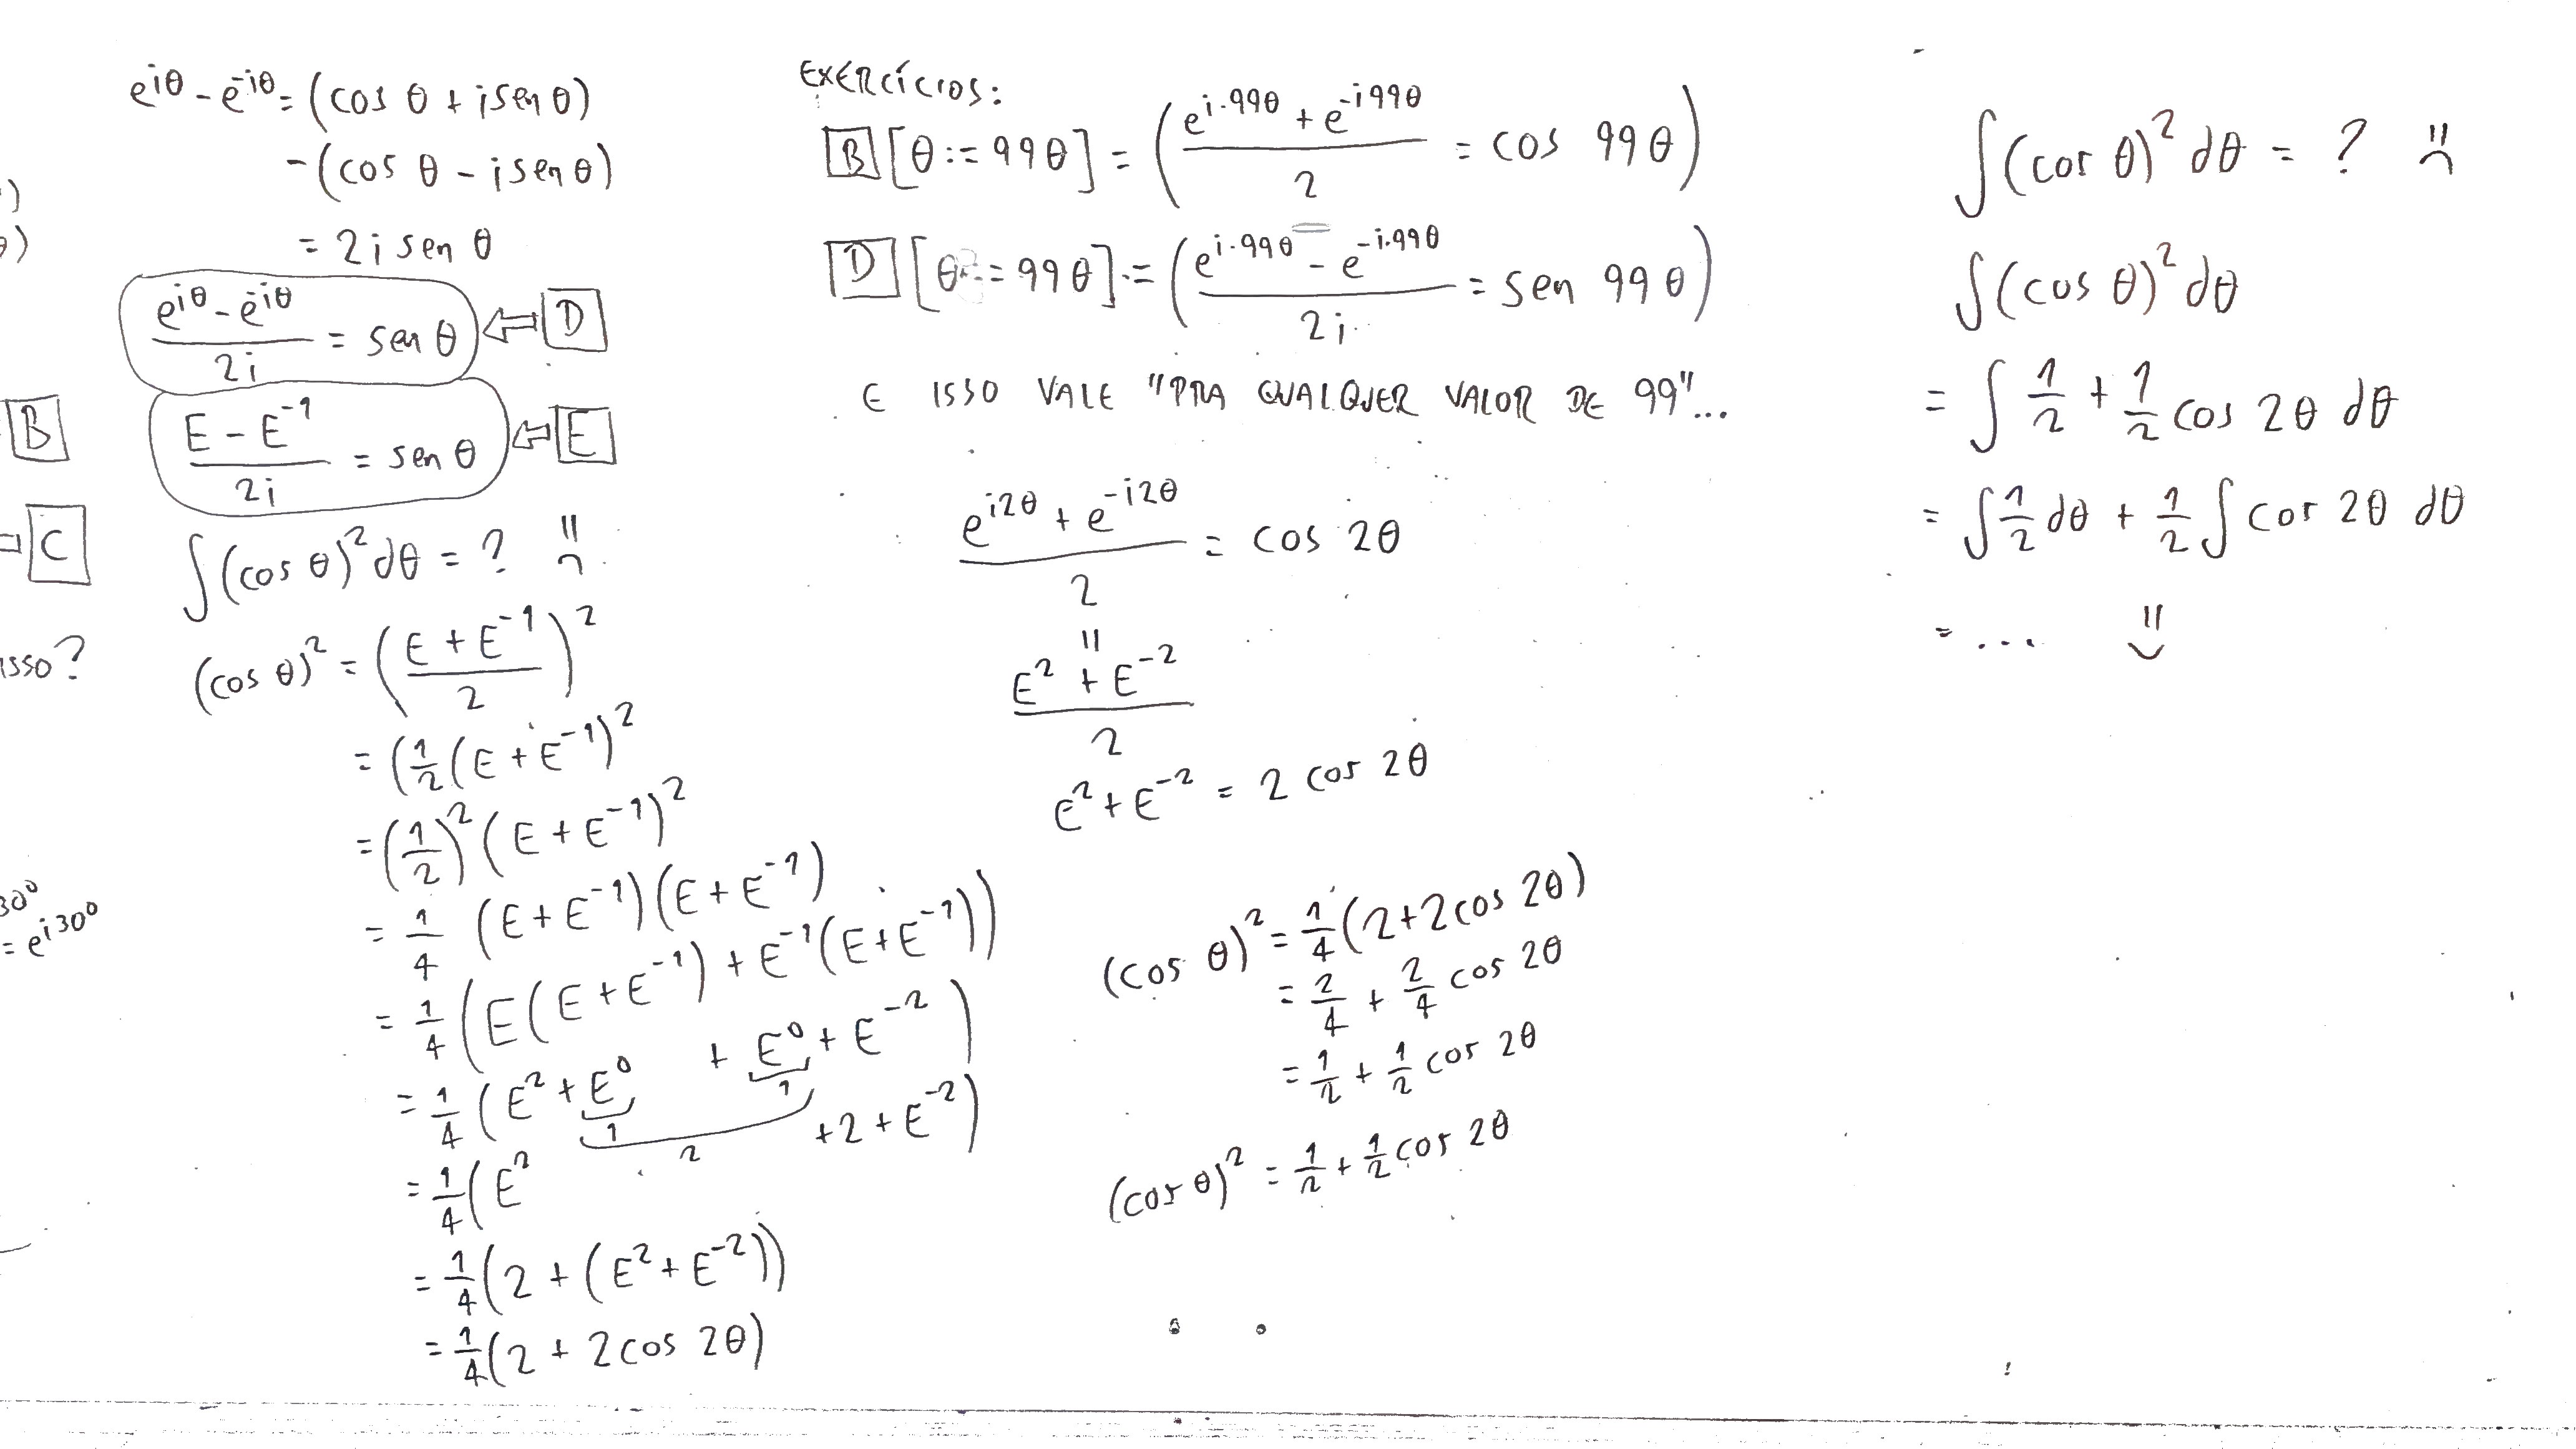 )
θ)
B
C
isso?
30°
= e^{i30°}
e^{iθ} - e^{-iθ} = (cos θ + i sen θ)
-(cos θ - i sen θ)
= 2i sen θ
(e^{iθ} - e^{-iθ})/2i = sen θ ⇐ D
(E - E^{-1})/2i = sen θ ⇐ E
∫(cos θ)² dθ = ? :(
(cos θ)² = ((E + E^{-1})/2)²
= (1/2 (E + E^{-1})²
= (1/2)² (E + E^{-1})²
= 1/4 (E + E^{-1})(E + E^{-1})
= 1/4 (E(E + E^{-1}) + E^{-1}(E + E^{-1}))
= 1/4 (E² + E⁰ + E⁰ + E^{-2})
1 1
2
= 1/4 (E² + 2 + E^{-2})
= 1/4 (2 + (E² + E^{-2}))
= 1/4 (2 + 2 cos 2θ)
EXERCÍCIOS:
B [θ := 99θ] = ((e^{i·99θ} + e^{-i99θ})/2 = cos 99θ)
D [θ := 99θ] = ((e^{i·99θ} - e^{-i·99θ})/2i = sen 99θ)
E ISSO VALE "PRA QUALQUER VALOR DE 99"...
(e^{i2θ} + e^{-i2θ})/2 = cos 2θ
=
(E² + E^{-2})/2
E² + E^{-2} = 2 cos 2θ
(cos θ)² = 1/4 (2 + 2 cos 2θ)
= 2/4 + 2/4 cos 2θ
= 1/2 + 1/2 cos 2θ
(cos θ)² = 1/2 + 1/2 cos 2θ
∫(cos θ)² dθ = ? :(
∫(cos θ)² dθ
= ∫ 1/2 + 1/2 cos 2θ dθ
= ∫ 1/2 dθ + 1/2 ∫ cos 2θ dθ
= ... :)